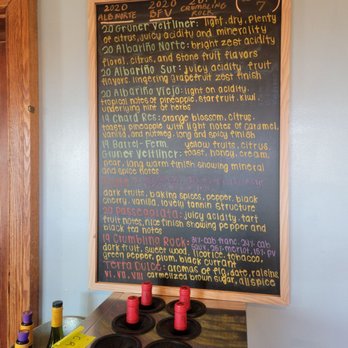 2020 2020
ALB.NORTE BFV CRUMBLING ROCK 7
20 Grüner Veltliner: light, dry, plenty
of citrus, juicy acidity and minerality
20 Albariño Norte: bright zesty acidity
floral, citrus, and stone fruit flavors
20 Albariño Sur: juicy acidity fruit
flavors, lingering grapefruit zest finish
20 Albariño Viejo: light on acidity,
tropical notes of pineapple, starfruit, kiwi,
underlying hint of herbs
19 Chard Res: orange blossom, citrus,
toasty pineapple with light notes of caramel,
vanilla, and nutmeg, long and spicy finish
19 Barrel-Ferm. yellow fruits, citrus,
Grüner Veltliner: toast, honey, cream,
pear, long warm finish showing mineral
and spice notes
dark fruits, baking spices, pepper, black
cherry, vanilla, lovely tannin structure
20 Passeggiata: juicy acidity, tart
fruit notes, nice finish showing pepper and
black tea notes
19 Crumbling Rock:
dark fruit, sweet wood, licorice, tobacco,
green pepper, plum, black currant
Terra Dulce: aromas of fig, date, raisins,
VI, VII, VIII carmelized brown sugar, allspice